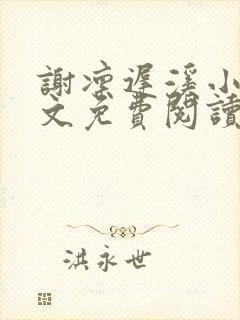 謝凛遲溪小
文免費閱讀
洪永世